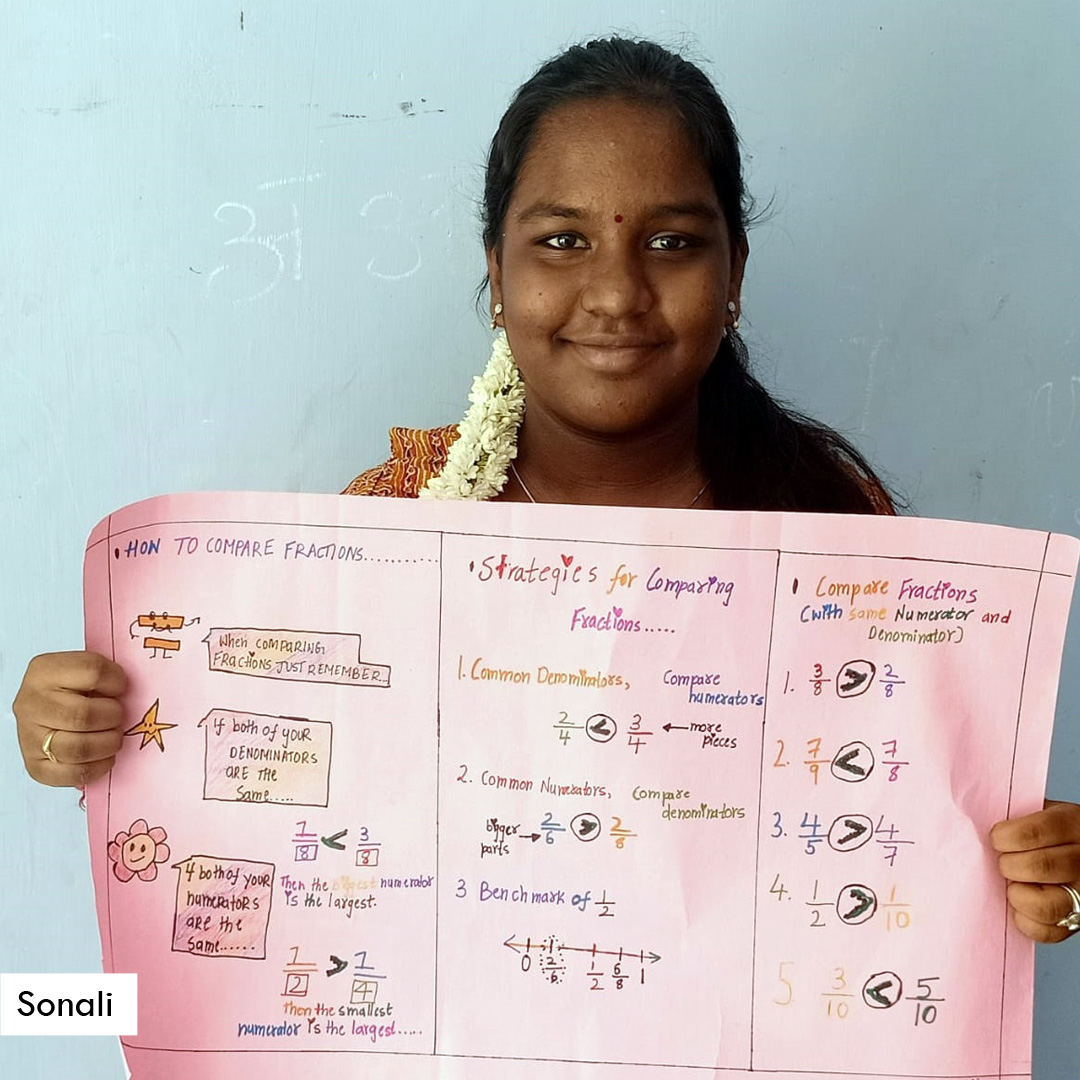 अ अ
• HOW TO COMPARE FRACTIONS..........
When COMPARING
FRACTIONS JUST REMEMBER...
if both of your
DENOMINATORS
ARE THE
Same.....
1/8 < 3/8
Then the biggest numerator
is the largest.
if both of your
numerators
are the
same......
1/2 > 1/4
then the smallest
numerator is the largest.....
• Strategies for Comparing
Fractions.....
1. Common Denominators, Compare
numerators
2/4 < 3/4 ← more
pieces
2. Common Numerators, Compare
denominators
bigger
parts → 2/6 > 2/8
3 Benchmark of 1/2
0 2/6 1/2 6/8 1
• Compare Fractions
(with same Numerator and
Denominator)
1. 3/8 > 2/8
2. 7/9 < 7/8
3. 4/5 > 4/7
4. 1/2 > 1/10
5 3/10 < 5/10
Sonali